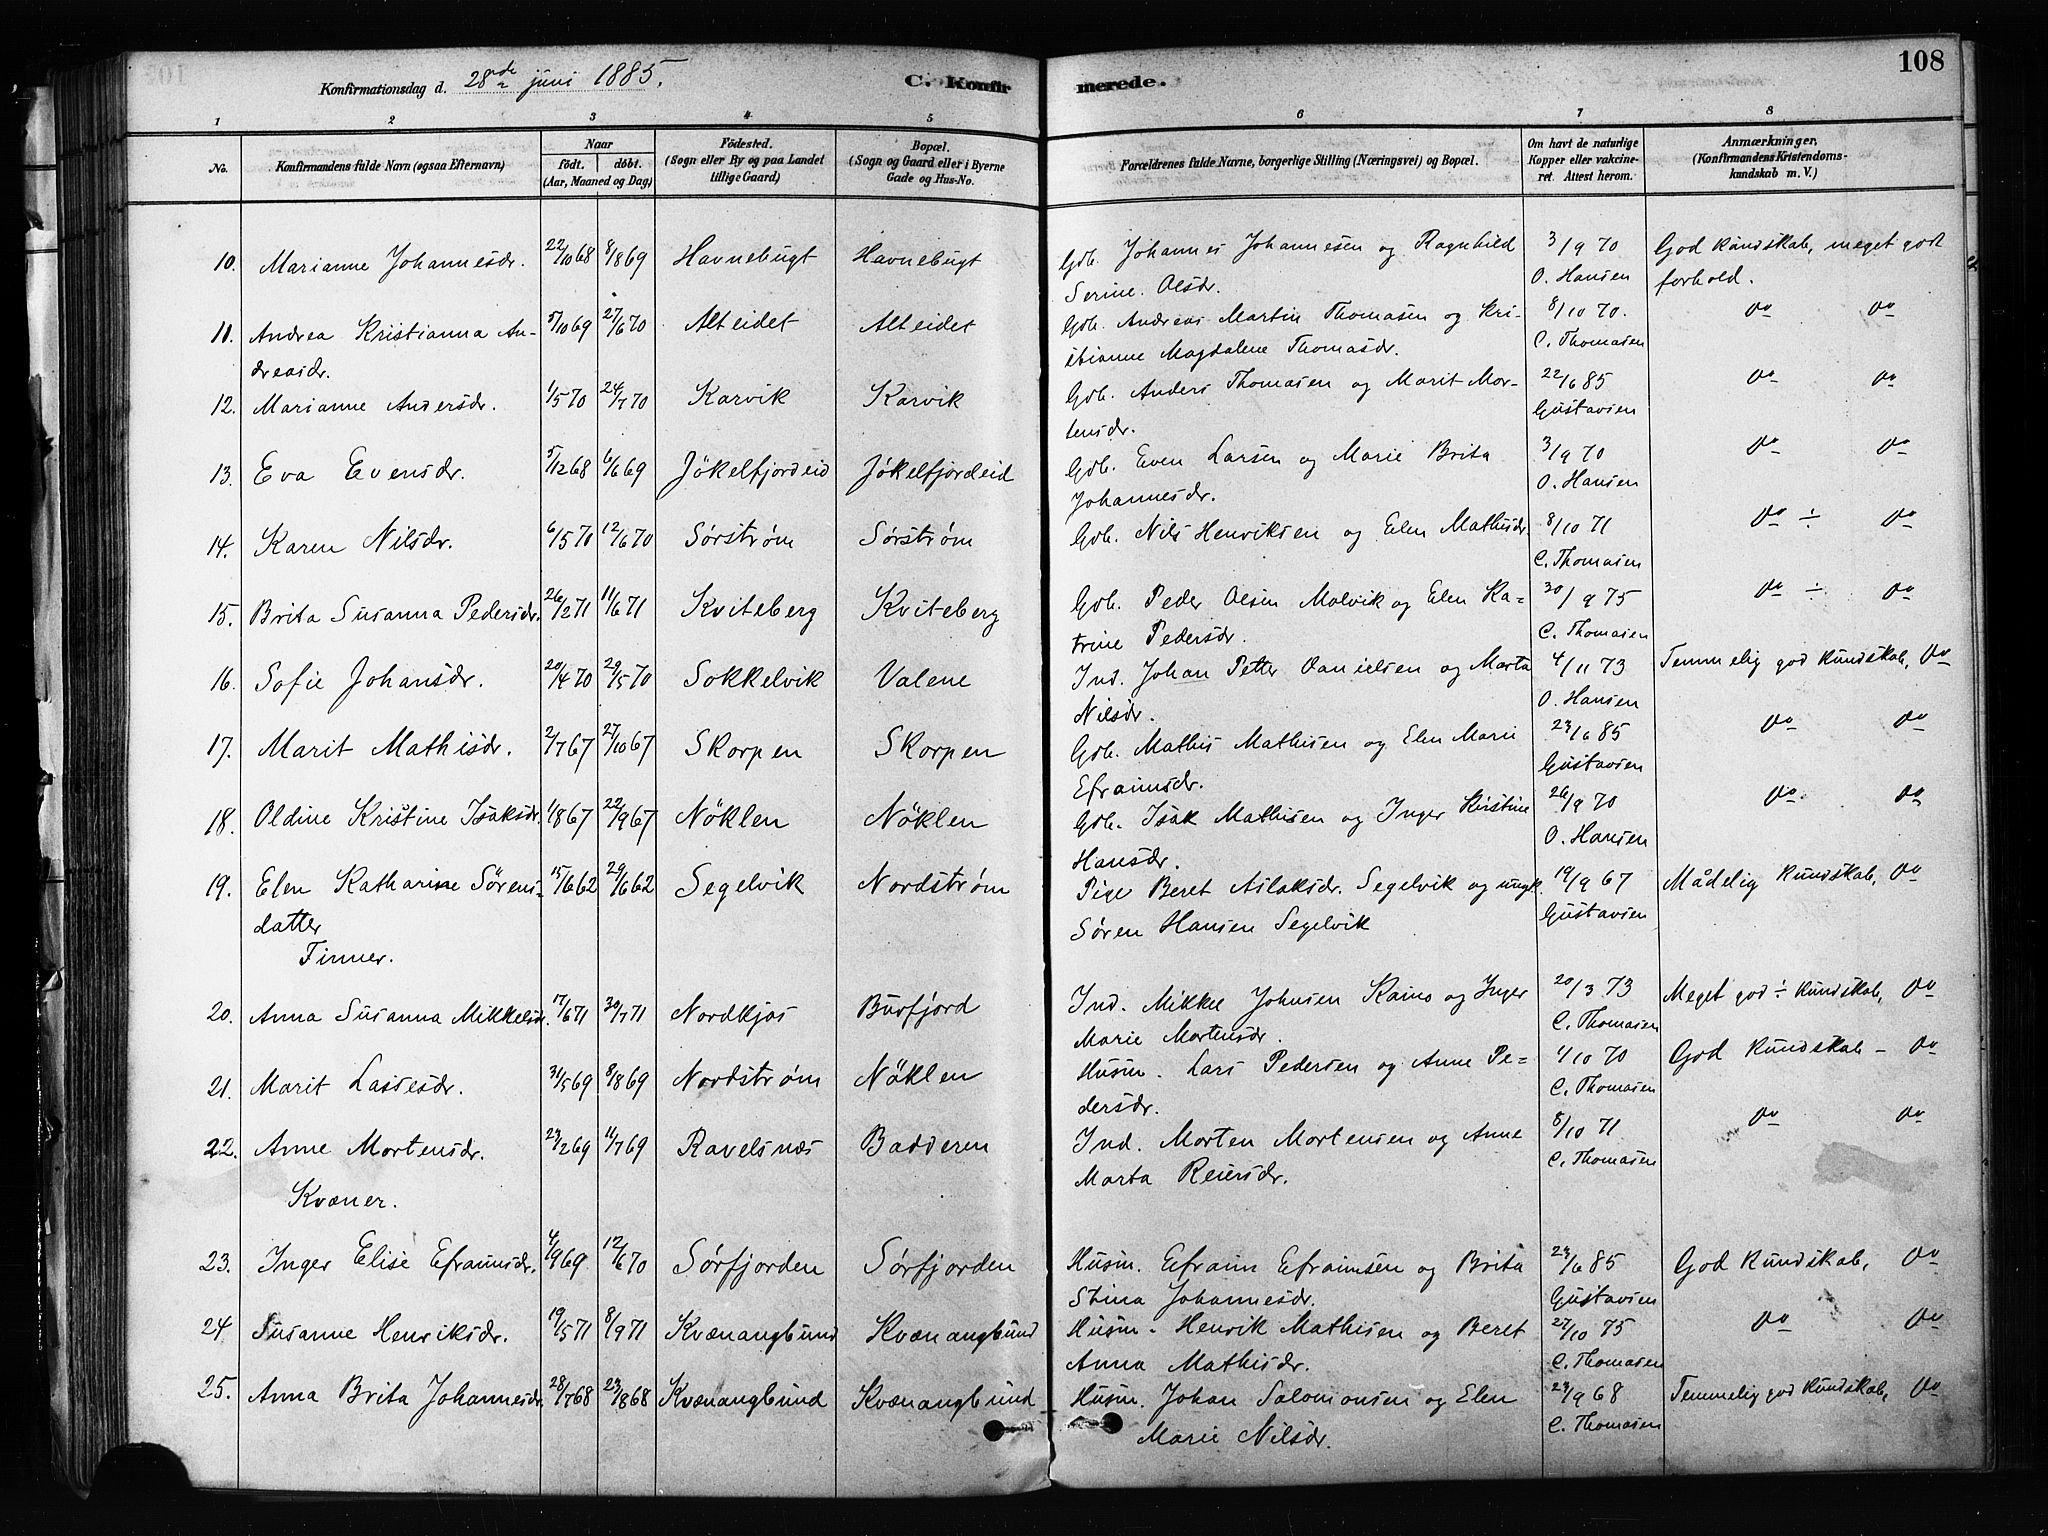 108
Konfirmationsdag d. 28de juni 1885.
C. Konfirmerede.
1 2 3 4 5 6 7 8
No. Konfirmandens fulde Navn (ogsaa Efternavn) Naar födt. döbt. (Aar, Maaned og Dag) Födested. (Sogn eller By og paa Landet tillige Gaard) Bopæl. (Sogn og Gaard eller i Byerne Gade og Hus-No. Forældrenes fulde Navne, borgerlige Stilling (Næringsvei) og Bopæl. Om havt de naturlige Kopper eller vakcineret. Attest herom. Anmærkninger. (Konfirmandens Kristendomskundskab m. V.)
10. Marianne Johannesdr. 22/10 68 8/8 69 Havnebugt Havnebugt Gdb. Johannes Johannesen og Ragnhild 3/9 70 God Kundskab, meget godt
Serine Olsdr. O. Hansen forhold.
11. Andrea Kristianna An- 5/10 69 27/6 70 Alteidet Alteidet Gdb. Andreas Martin Thomasen og Kri- 8/10 70. do do
dreasdr. stianne Magdalene Thomasdr. C. Thomasen
12. Marianne Andersdr. 1/5 70 24/7 70 Karvik Karvik Gdb. Anders Thomasen og Marit Mor- 22/6 85 do do
tensdr. Gustavsen
13. Eva Evensdr. 5/12 68 6/6 69 Jökelfjordeid Jökelfjordeid Gdb. Even Larsen og Marie Brita 3/9 70 do do
Johannesdr. O. Hansen
14. Karen Nilsdr. 6/5 70 12/6 70 Sørstrøm Sørstrøm Gdb. Nils Henriksen og Elen Mathisdr. 8/10 71 do ÷ do
C. Thomasen
15. Brita Susanna Pedersdr. 26/2 71 11/6 71 Kviteberg Kviteberg Gdb. Peder Olsen Malvik og Elen Ka- 30/9 75 do ÷ do
trine Pedersdr. C. Thomasen
16. Sofie Johansdr. 20/4 70 29/5 70 Sokkelvik Valene Ind. Johan Petter Danielsen og Marta 4/11 73 Temmelig god Kundskab, do
Nilsdr. O. Hansen
17. Marit Mathisdr. 2/7 67 27/10 67 Skorpen Skorpen Gdb. Mathis Mathisen og Elen Marie 23/6 85 do do
Efraimsdr. Gustavsen
18. Oldine Kristine Isaksdr. 1/8 67 22/9 67 Nöklen Nöklen Gdb. Isak Mathisen og Inger Kirstine 26/9 70 do. do
Hansdr. O. Hansen
19. Elen Katharine Sörens- 15/6 62 29/6 62 Segelvik Nordstrøm Pige Beret Aslaksdr. Segelvik og ungk. 19/9 67 Mådelig Kundskab, do
datter Søren Hansen Segelvik Gustavsen
Finner.
20. Anna Susanna Mikkelsdr. 17/6 71 30/7 71 Nordkjos Burfjord Ind. Mikkel Johnsen Kaino og Inger 20/3 73 Meget god ÷ Kundskab, do
Marie Mortensdr. C. Thomasen
21. Marit Lassesdr. 31/5 69 8/8 69 Nordstrøm Nöklen Husm. Lars Pedersen og Anne Pe- 4/10 70 God Kundskab - do
dersdr. C. Thomasen
22. Anne Mortensdr. 23/2 69 11/7 69 Ravelsnæs Badderen Ind. Morten Mortensen og Anne 8/10 71 do do
Marta Reiersdr. C. Thomasen
Kvæner.
23. Inger Elise Efraimsdr. 4/9 69 12/6 70 Sørfjorden Sørfjorden Husm. Efraim Efraimsen og Brita 23/6 85 God Kundskab, do
Stina Johannesdr. Gustavsen
24. Susanne Henriksdr. 19/5 71 8/9 71 Kvænangbund Kvænangbund Husm. Henrik Mathisen og Beret 27/10 75 do do
Anna Mathisdr. C. Thomasen
25. Anna Brita Johannesdr. 28/7 68 23/8 68 Kvænangbund Kvænangbund Husm. Johan Salomonsen og Elen 23/9 68 Temmelig god Kundskab, do
Marie Nilsdr. C. Thomasen